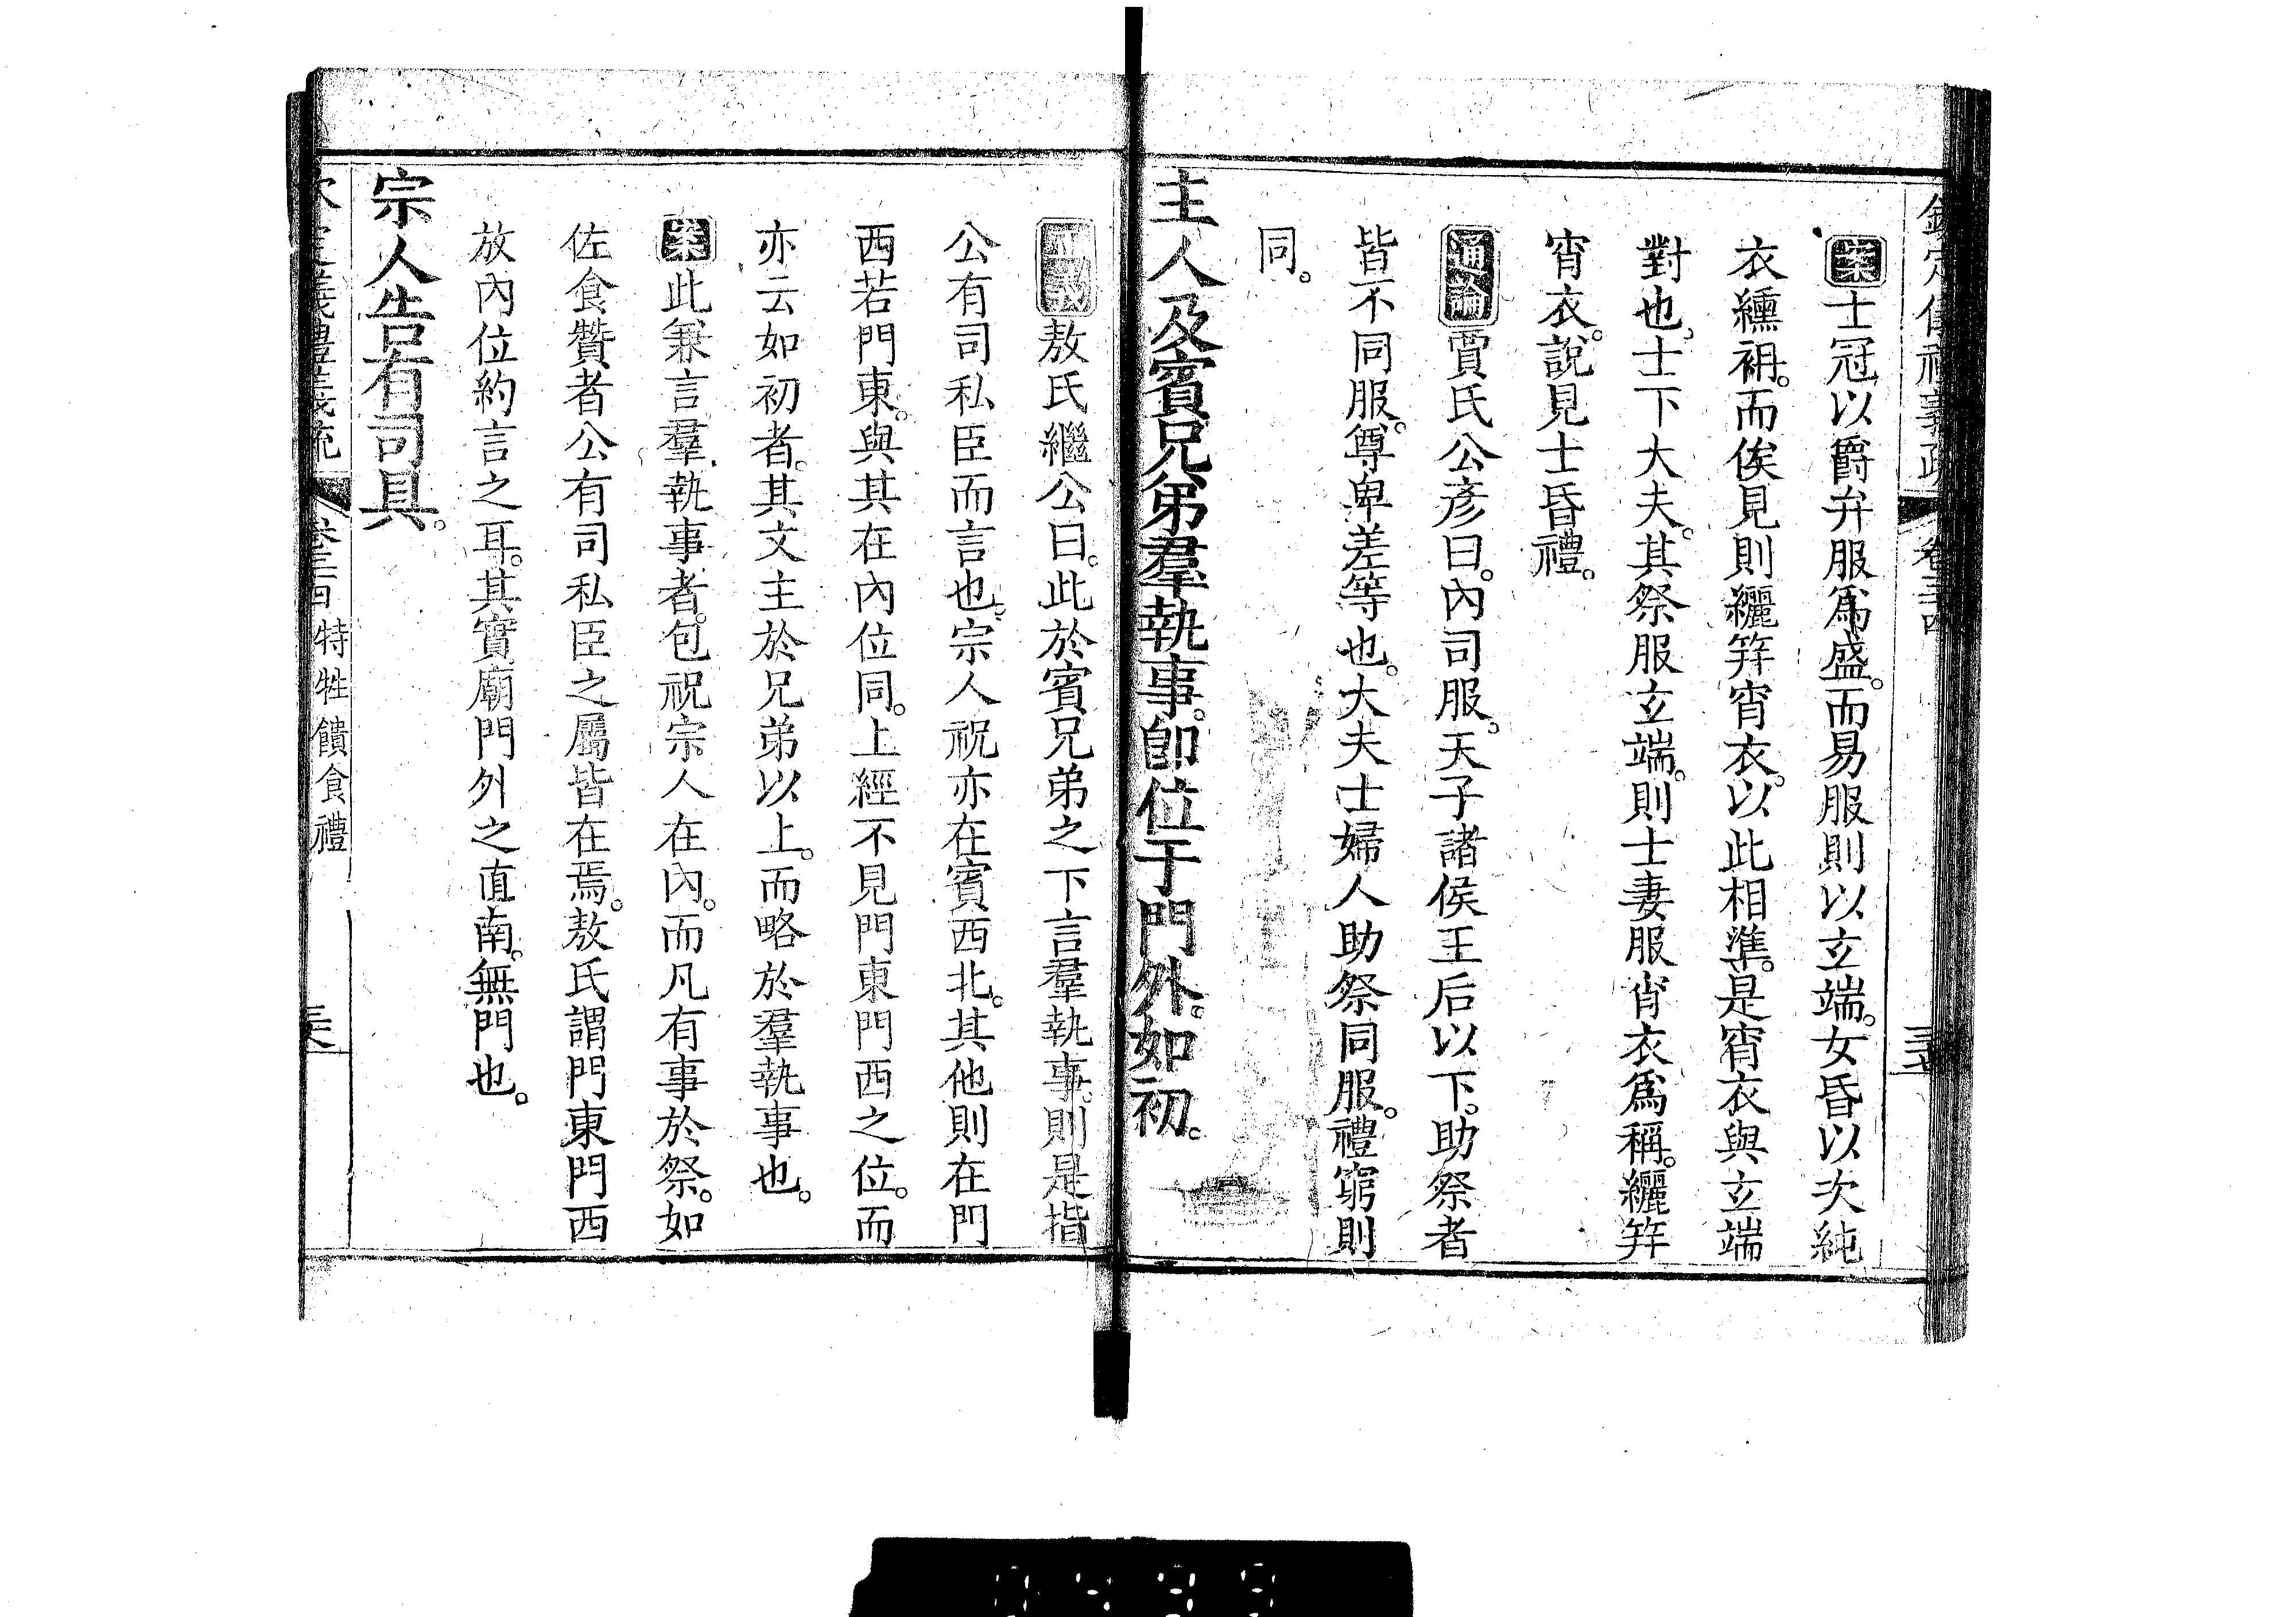 欽定儀禮義疏 卷三十四
案士冠以爵弁服爲盛。而易服則以玄端。女昏以次純
衣纁袡。而俟見則纚笄宵衣。以此相準。是宵衣與玄端
對也。士下大夫。其祭服玄端。則士妻服宵衣爲稱。纚笄
宵衣。說見士昏禮。
通論賈氏公彥曰。內司服。天子諸侯王后以下。助祭者
皆不同服。尊卑差等也。大夫士婦人助祭同服。禮窮則
同。
主人及賓兄弟羣執事。卽位于門外。如初。
敖氏繼公曰。此於賓兄弟之下言羣執事。則是指
公有司私臣而言也。宗人祝亦在賓西北。其他則在門
西若門東。與其在內位同。上經不見門東門西之位。而
亦云如初者。其文主於兄弟以上。而略於羣執事也。
案此兼言羣執事者。包祝宗人在內。而凡有事於祭。如
佐食贊者公有司私臣之屬皆在焉。敖氏謂門東門西
放內位約言之耳。其實廟門外之直南。無門也。
宗人告有司具。
欽定儀禮義疏 特牲饋食禮